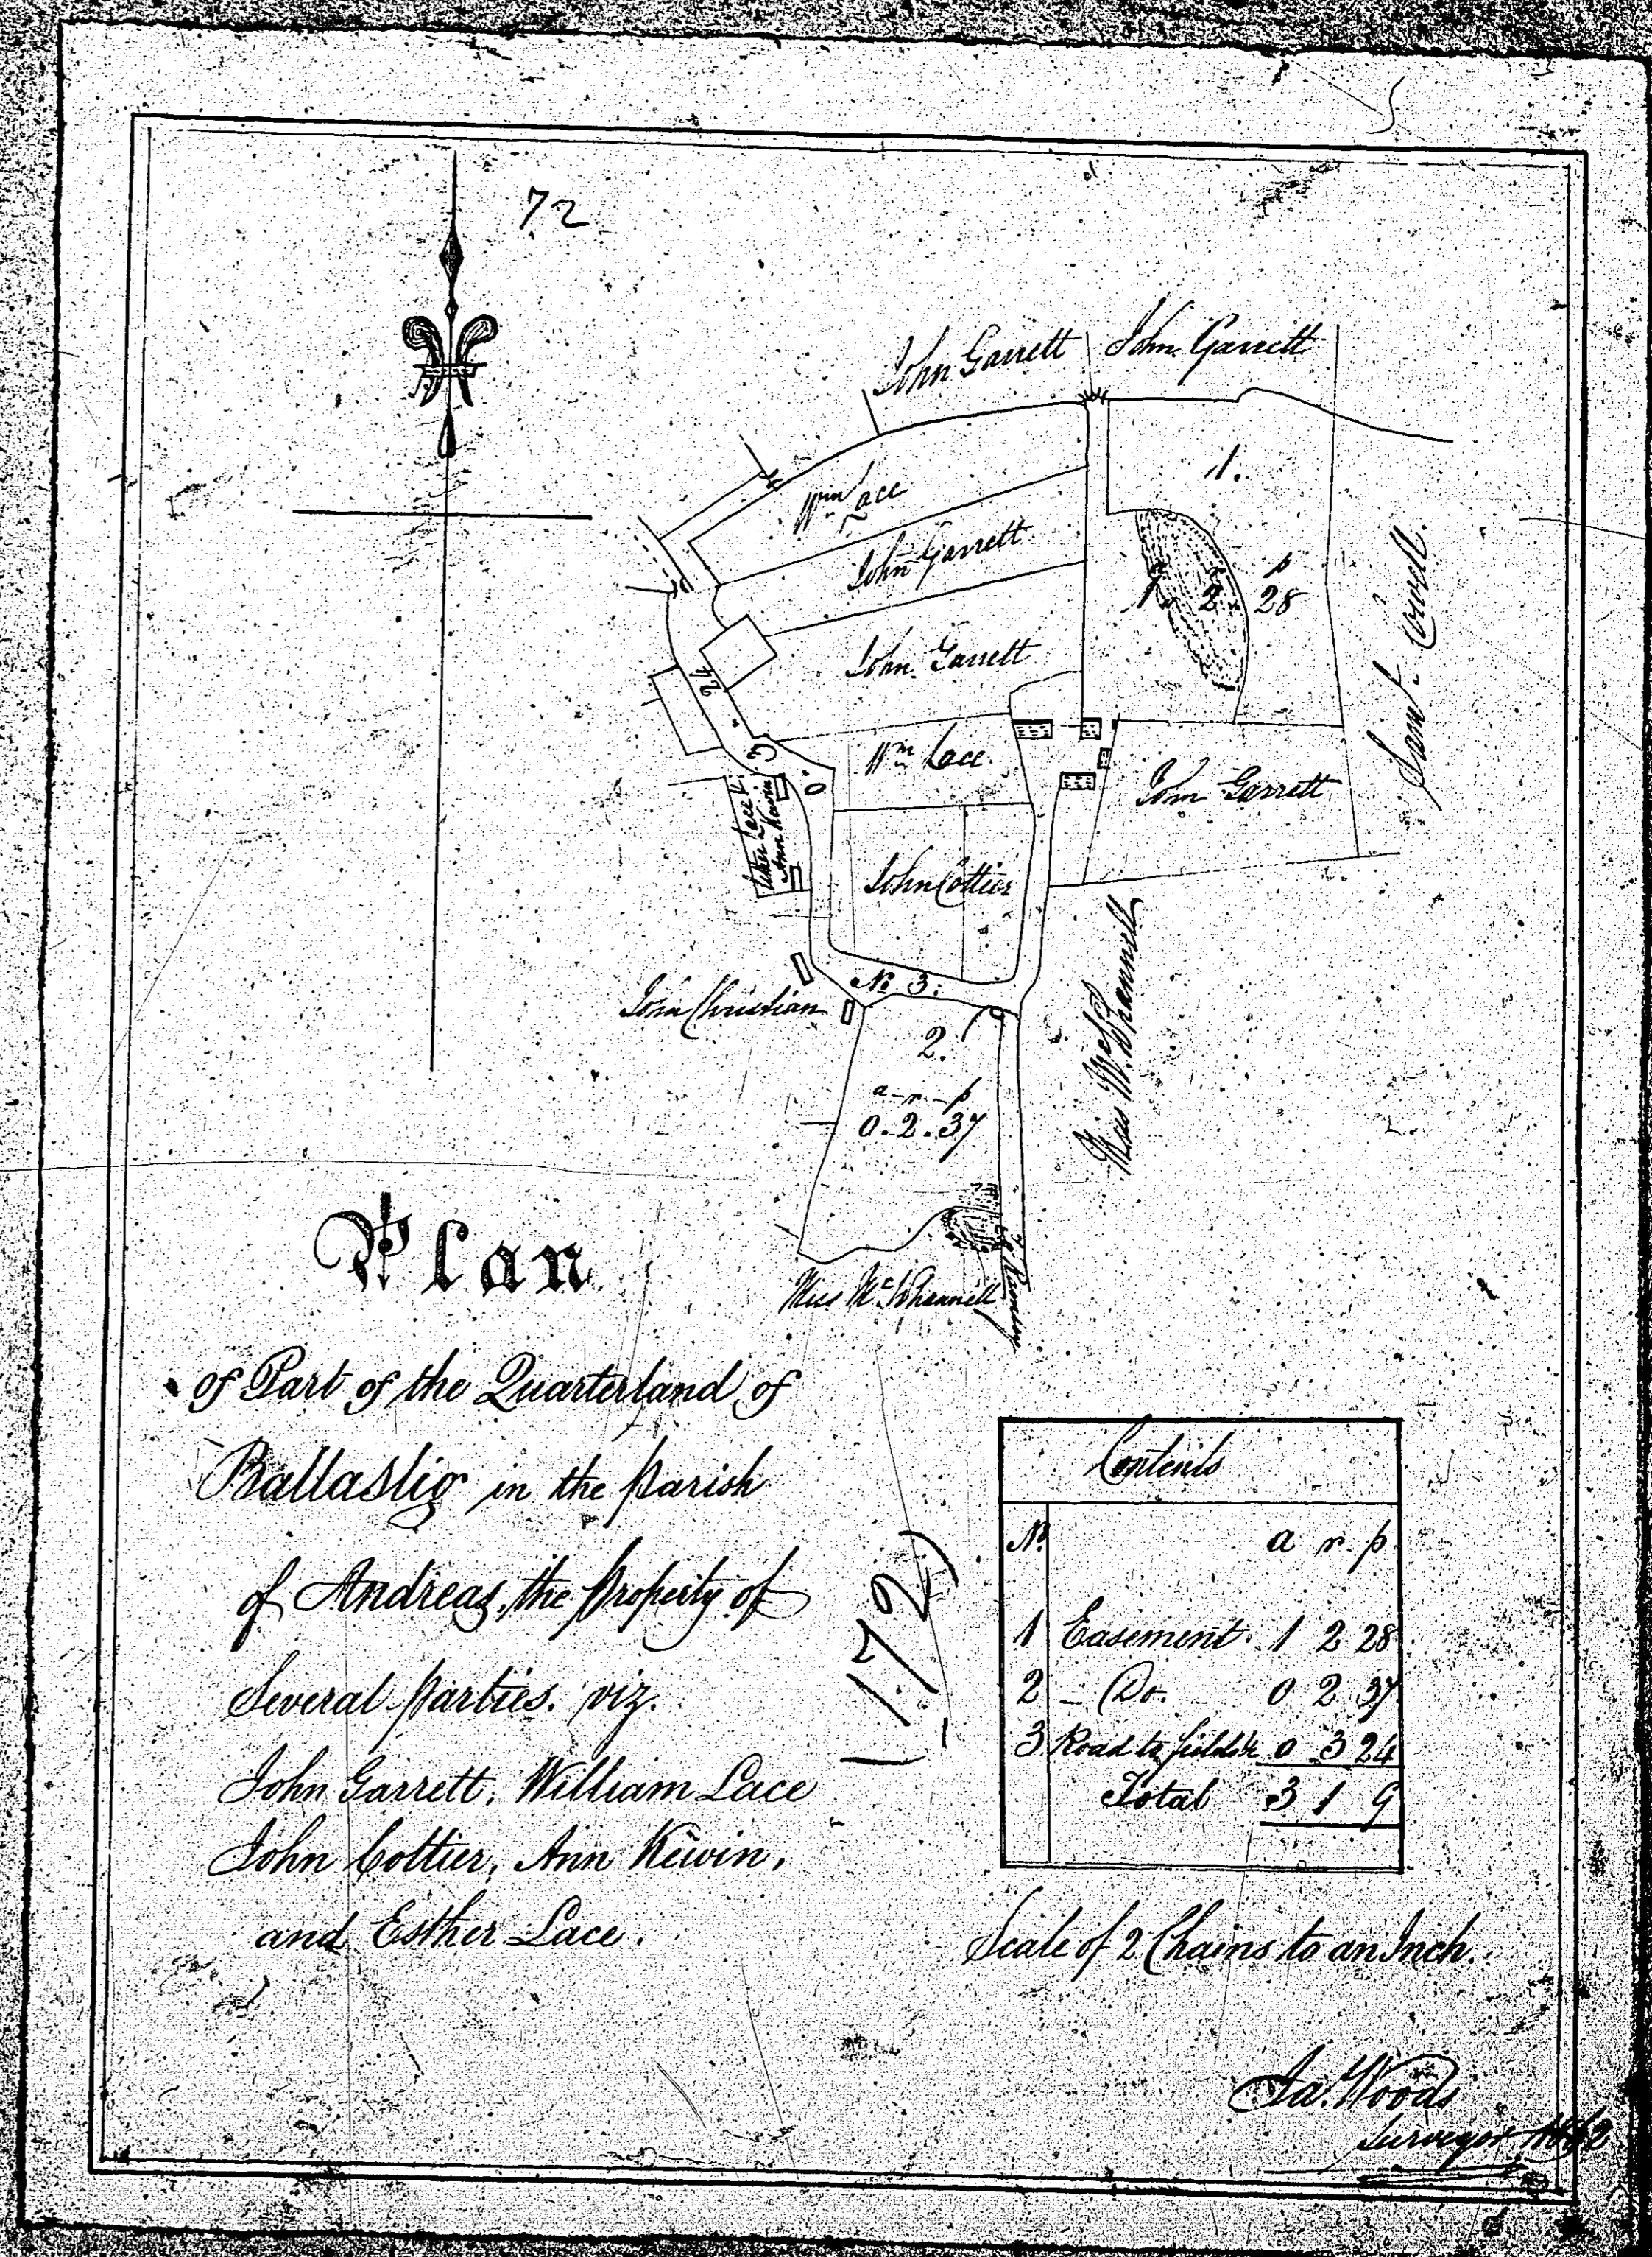 72
John Garrett John Garrett
1.
Wm Lace
John Garrett
a r p
1 2 28
John Garrett
Saml.
24
3
0
Wm Lace
John Garrett
Esther Lace &
Ann Kewin
John Cottier
No 3.
John Christian
2.
a - r - p
0. 2. 37
Miss
Miss
Plan
of Part of the Quarterland of
Ballaslig in the parish
of Andreas, the Property of
Several parties. viz.
John Garrett, William Lace
John Cottier, Ann Kewin,
and Esther Lace.
(172)
Contents
No. a r. p.
1 Easement. 1 2 28
2 - Do. - 0 2 37
3 Road to fields & 0 3 24
Total 3 1 9
Scale of 2 Chains to an Inch.
Ja. Woods
Surveyor